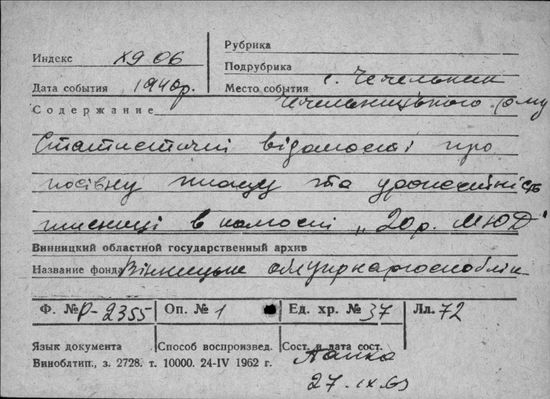 Рубрика
Индекс XQ 06
Подрубрика
Дата события 1940р. Место события с. Чечельник
Содержание Чечельницького р-ну
Статистичні відомості про
посівну площу та урожайність
пшениці в колгоспі „20 р. МЮД"
Винницкий областной государственный архив
Название фонда Вінницьке
Ф. № Р-2355 Оп. № 1 Ед. хр. № 37 Лл. 72
Язык документа Способ воспроизвед. Сост. и дата сост.
Виноблтип., з. 2728. т. 10000. 24-IV 1962 г.
27.IX.63